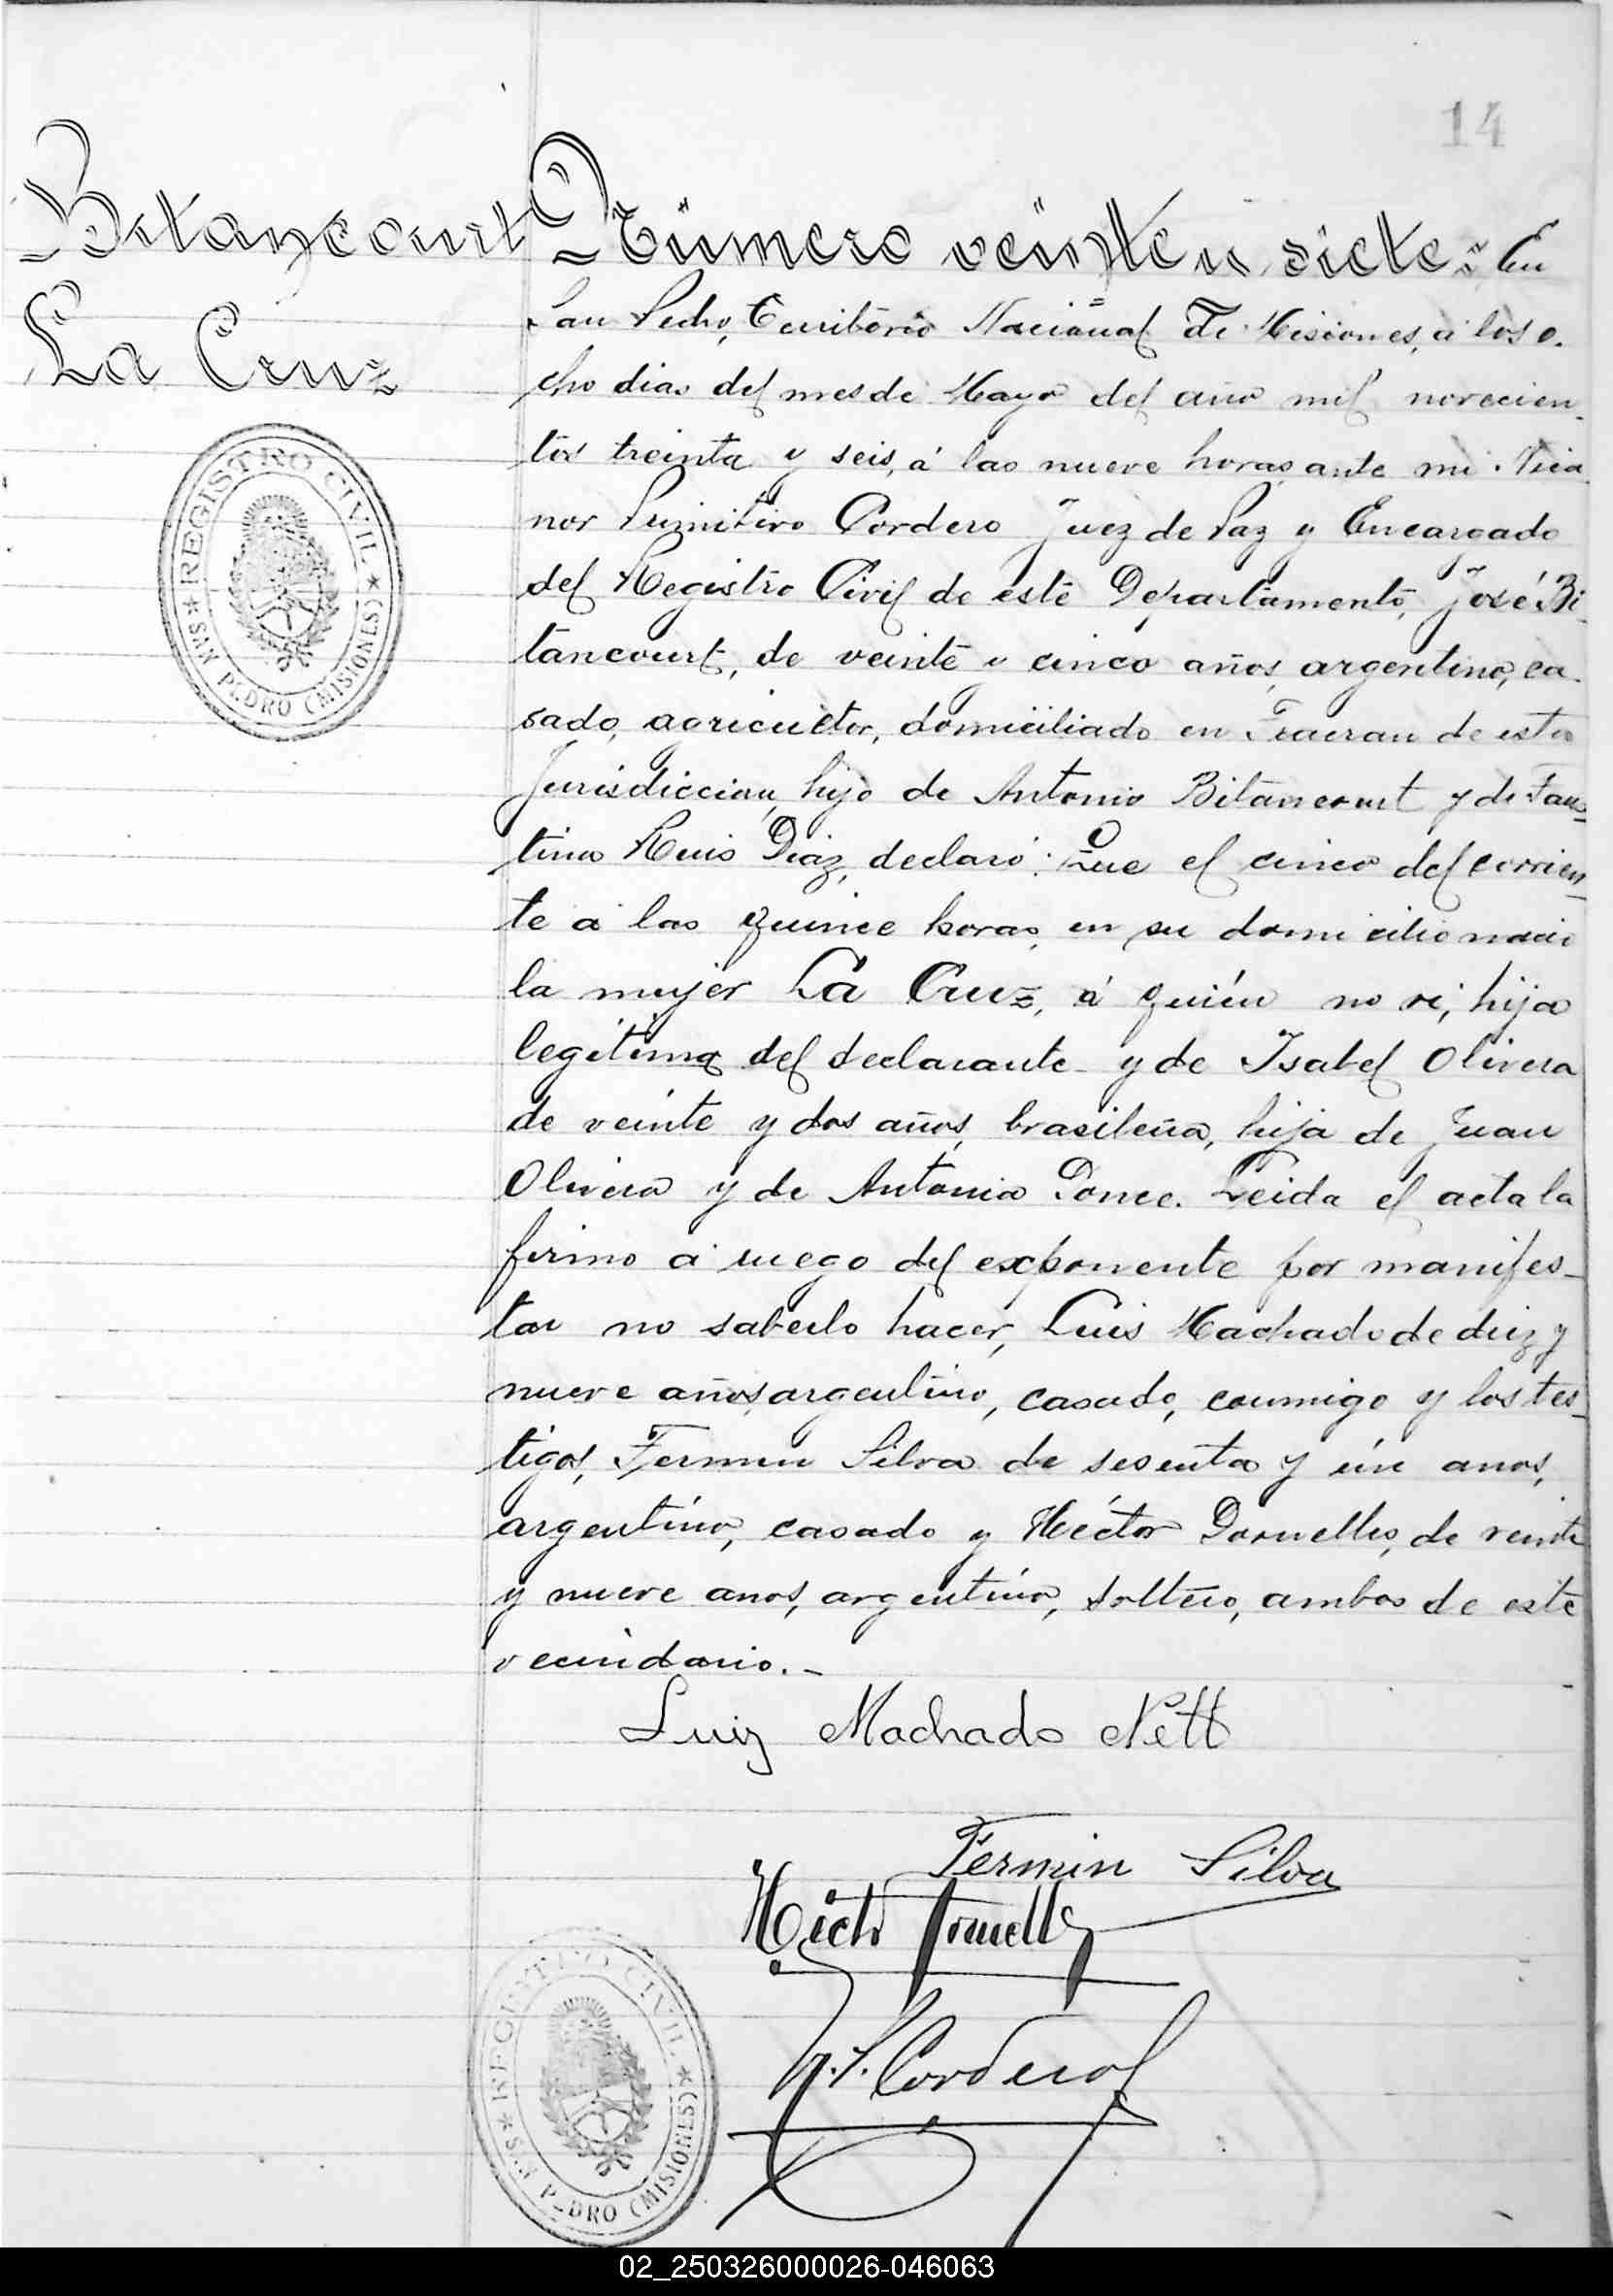 14
Bitancourt
La Cruz
Número veinte y siete: En
San Pedro, Territorio Nacional de Misiones, á los o-
cho dias del mes de Mayo del año mil novecien-
tos treinta y seis, á las nueve horas, ante mi Nica
nor Primitivo Cordero Juez de Paz y Encargado
del Registro Civil de este Departamento, José Bi-
tancourt, de veinte y cinco años, argentino, ca-
sado, agricultor, domiciliado en Fracran de esta
Jurisdiccion, hijo de Antonio Bitancourt y de Faus-
tina Ruis Diaz, declaró: Que el cinco del corrien-
te á las quince horas, en su domicilio nació
la mujer La Cruz, á quién no ví, hija
legitima del declarante y de Isabel Olivera
de veinte y dos años, brasileña, hija de Juan
Olivera y de Antonia Ponce. Leida el acta la
firmo á ruego del exponente por manifes-
tar no saberlo hacer, Luis Machado de diez y
nueve años, argentino, casado, conmigo y los tes-
tigos, Fermin Silva de sesenta y ún anos,
argentino, casado y Héctor Dornelles, de veinte
y nueve anos, argentino, soltero, ambos de este
vecindario.-
Luiz Machado Nett
Fermin Silva
Héctor Dornelles
N. P. Cordero
REGISTRO CIVIL
★ SAN PEDRO (MISIONES) ★
REGISTRO CIVIL
★ SAN PEDRO (MISIONES) ★
02_250326000026-046063